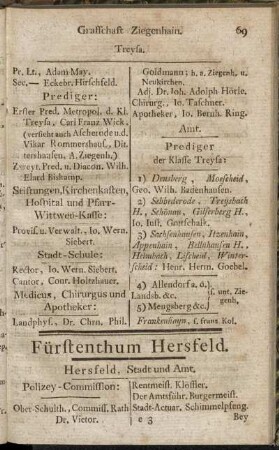 Grafschaft Ziegenhain. 69
Treysa.
Pr. Lt., Adam May.
Sec.— Eckebr. Hirschfeld.
Prediger:
Erster Pred. Metropol. d. Kl.
Treysa, Carl Franz Wick,
(versieht auch Ascherode u. d.
Vikar Rommershaus,
tershausen, A. Ziegenh.)
Zweyt. Pred. u. Diacon. Wilh.
Ehard Biskamp.
Stiftungen, Kirchenkasten,
Hospital und Pfarr-
Wittwen-Kasse:
Provis. u. Verwalt., Io. Wern.
Siebert.
Stadt-Schule:
Rector, Io. Wern. Siebert.
Cantor, Conr. Holtzhauer.
Medicus, Chirurgus und
Apotheker:
Landphys., Dr. Chrn. Phil.
Goldmann; h. z. Ziegenh. u.
Neukirchen.
Adj. Dr. Joh. Adolph Höfse.
Chirurg., Io. Taschner.
Apotheker, Io. Bernh. Ring.
Amt.
Prediger
der Klasse Treysa:
1) Densberg, Moscheid,
Geo. Wilh. Badenhausen.
2) Sebbederode, Treisbach
H., Schönau, Gilserberg H.,
Io. Iust. Gottschalk.
3) Sachsenhausen, Itzenhain,
Appenhain, Bellnhausen H.,
Heimbach, Lischeid, Winter-
scheid; Henr. Herm. Goebel.
4) Allendorf a. d.
Landsb. &c.
5) Mengsberg &c.
s. unt. Zie-
genh.
Frankenhayn, s. franz. Kol.
Fürstenthum Hersfeld.
Hersfeld, Stadt und Amt.
Polizey-Commission:
Ober-Schulth., Commiss. Rath
Dr. Vietor.
Rentmeist. Klössler.
Der Amtsführ. Burgermeist.
Stadt-Actuar. Schimmelpfeng.
e 3 Bey